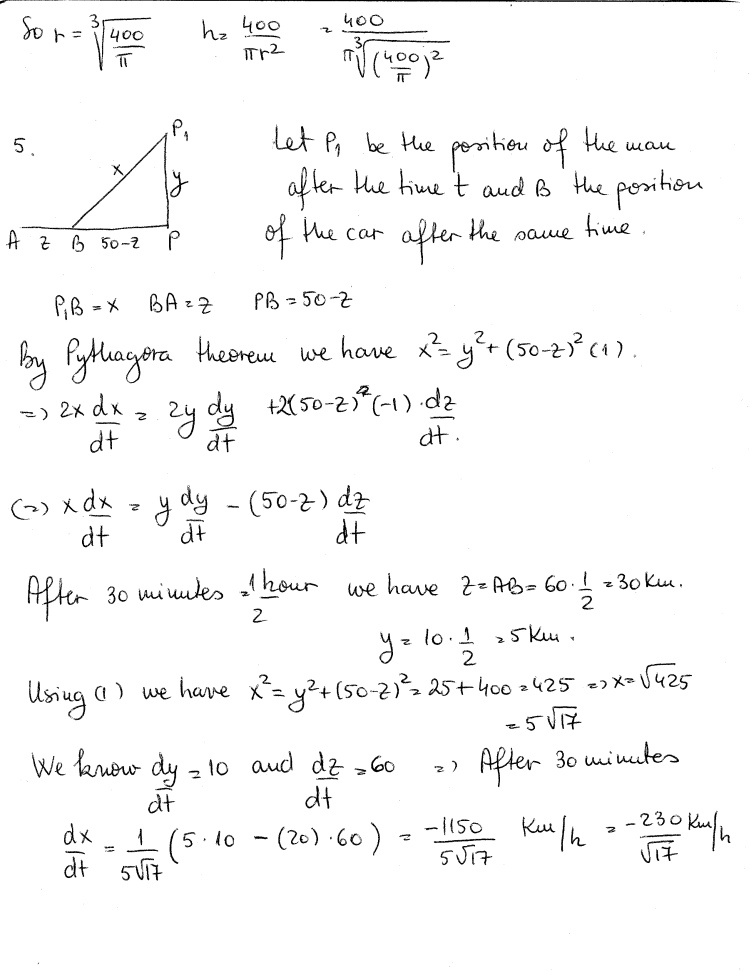 So r = ∛(400/π)   h = 400/πr² = 400/(π∛((400/π)²))
5.
P₁
x
y
A z B 50-z P
Let P₁ be the position of the man
after the time t and B the position
of the car after the same time.
P₁B = x   BA = z   PB = 50-z
By Pythagora theorem we have x² = y² + (50-z)² (1).
=> 2x dx/dt = 2y dy/dt + 2(50-z)(-1)·dz/dt.
(=) x dx/dt = y dy/dt - (50-z) dz/dt
After 30 minutes = 1/2 hour we have z = AB = 60·1/2 = 30 Km.
y = 10·1/2 = 5 Km.
Using (1) we have x² = y² + (50-z)² = 25 + 400 = 425 => x = √425
= 5√17
We know dy/dt = 10 and dz/dt = 60 => After 30 minutes
dx/dt = 1/(5√17) (5·10 - (20)·60) = -1150/(5√17) Km/h = -230/√17 Km/h